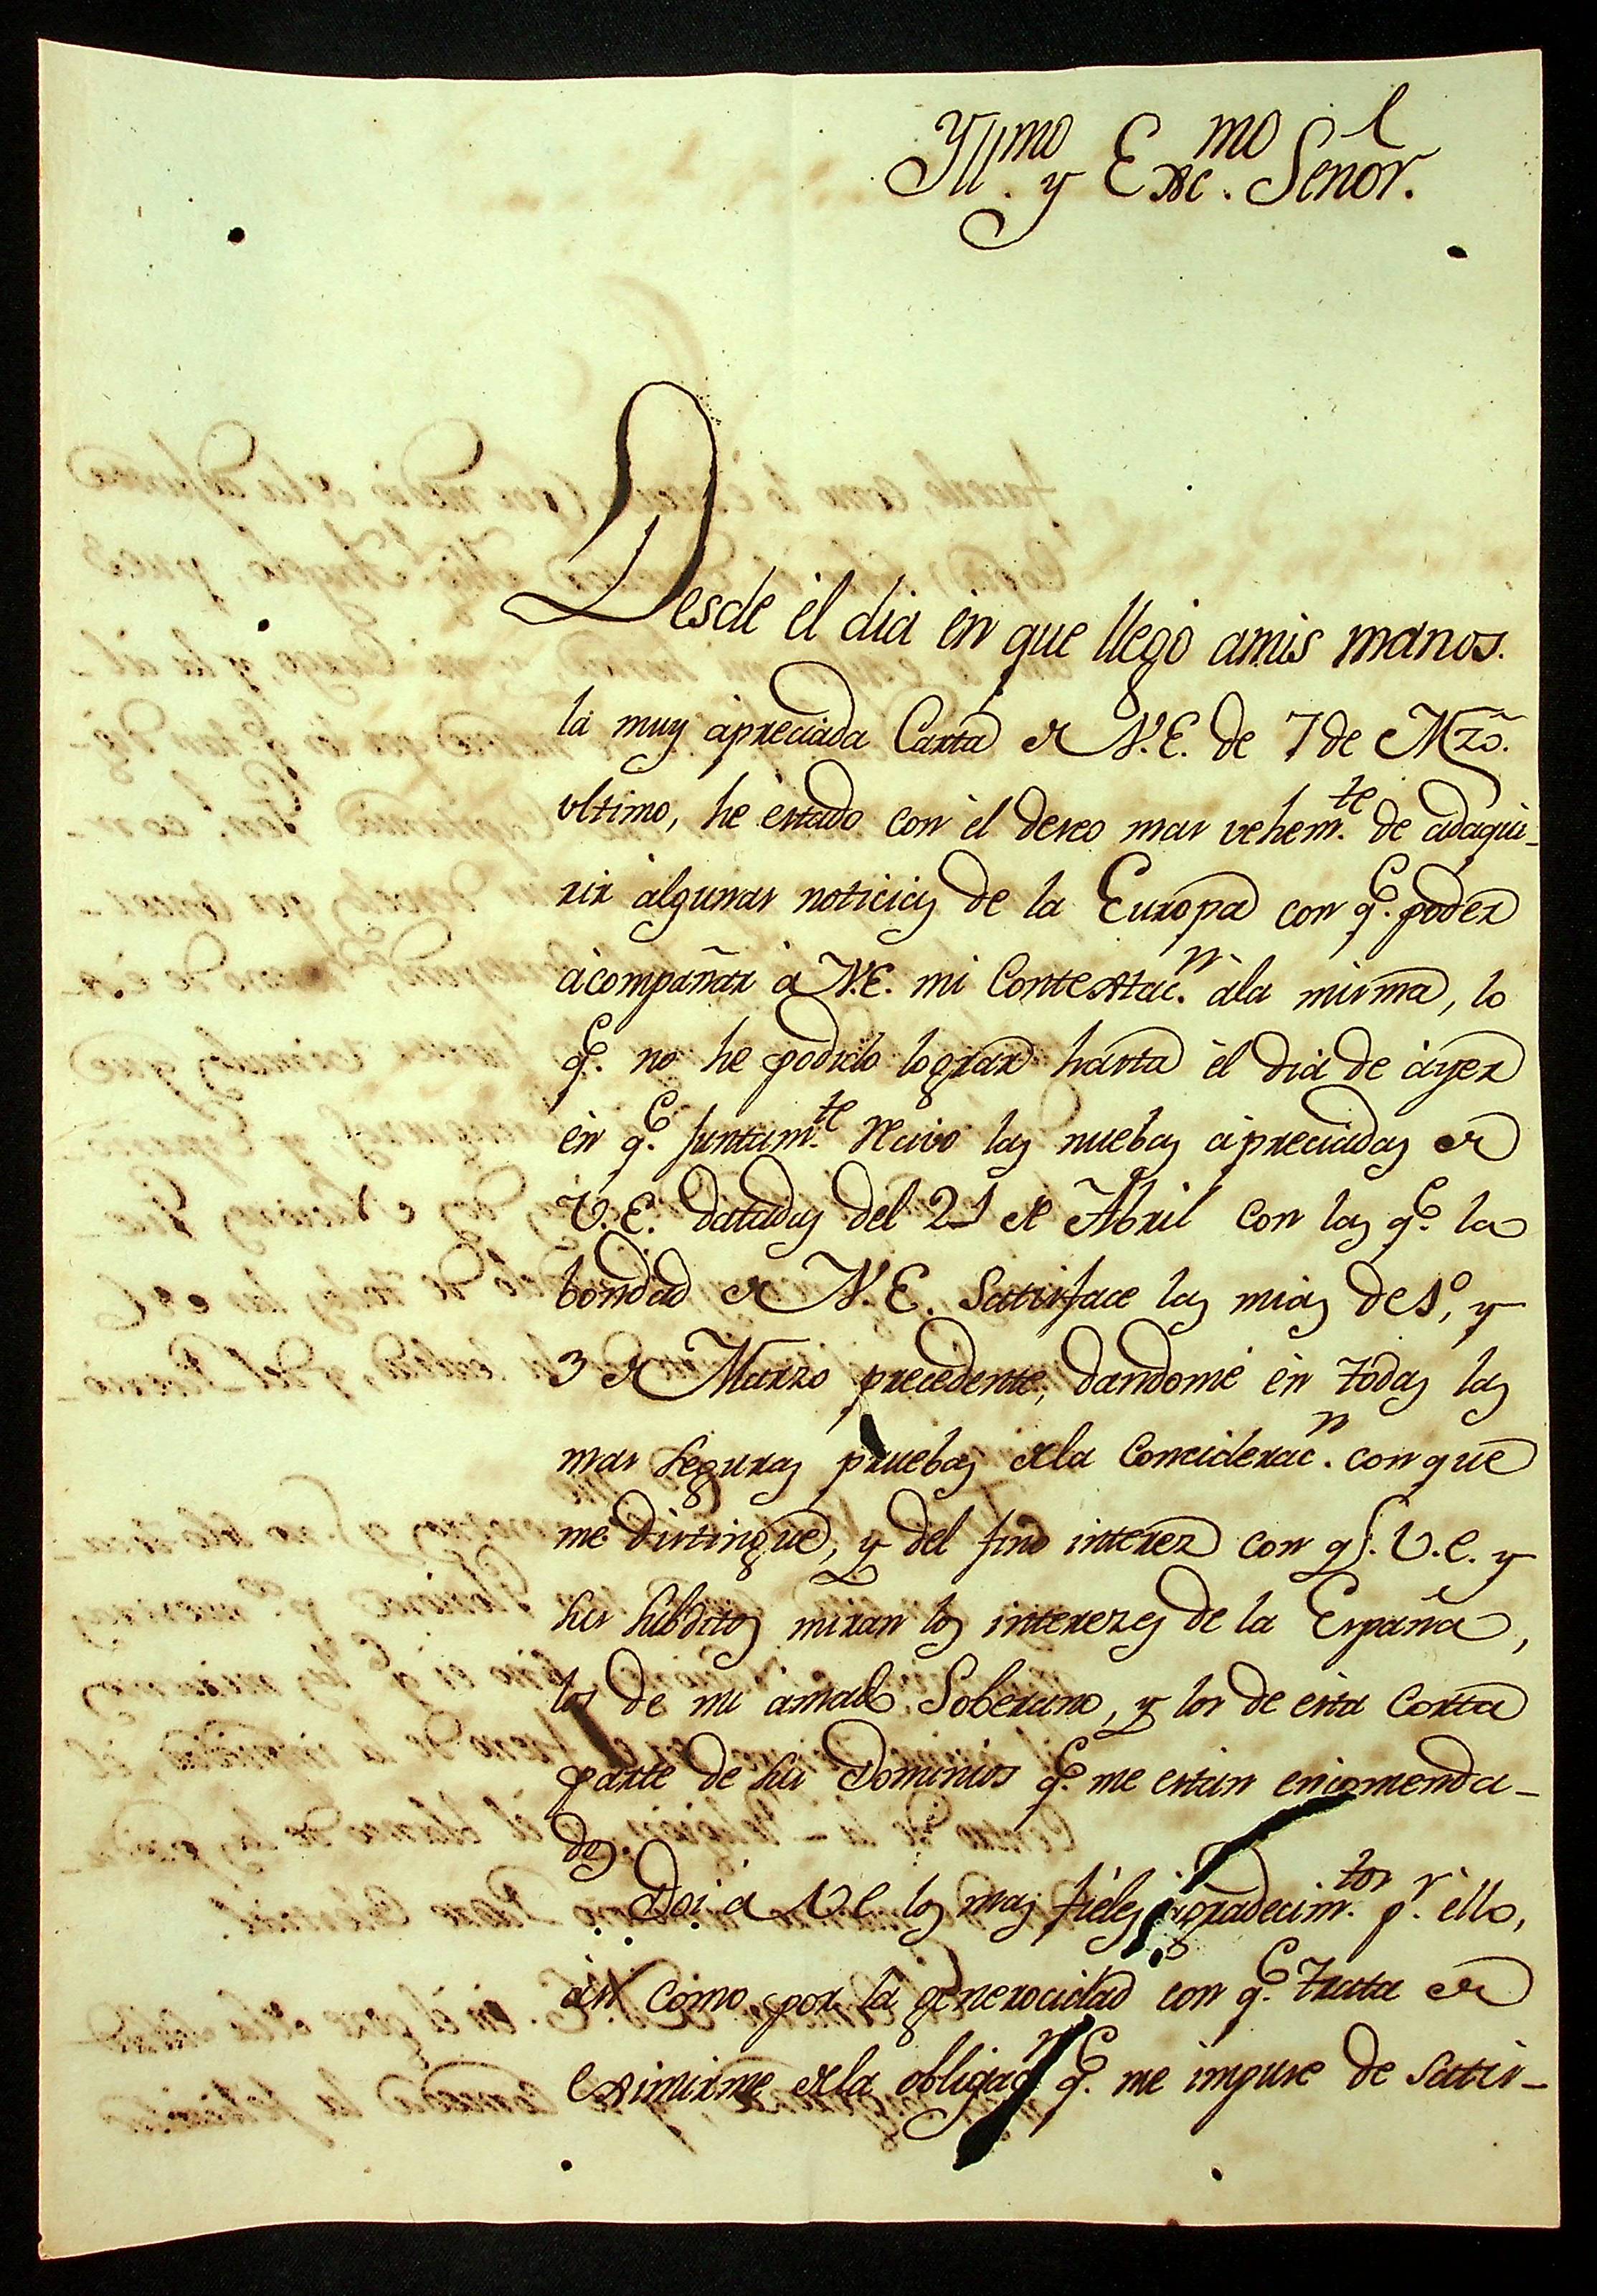 Yll.mo y Exc.mo Señor.
Desde el dia en que llegó amis manos.
la muy apreciada Carta de V.E. de 7 de Mzõ.
ultimo, he estado con el deseo mas vehem.te de adaqui-
rir algunas noticias de la Europa con q.e poder
acompañar a V.E. mi Contestac.n ala misma, lo
q.e no he podido lograr hasta el dia de ayer
en q.e juntam.te recivo las nuebas apreciadas de
V.E. datadas del 21 de Abril con las q.e la
bondad de V.E. satisface las mias de 1º, y
3 de Marzo precedente, dandome en todas las
mas seguras pruebas dela Considerac.n con que
me distingue, y del fino interez con q.e V.E. y
sus subditos miran los interezes de la España,
los de mi amado Soberano, y los de esta corta
parte de sus Dominios q.e me estan encomenda-
dos.
Doi a V E los mas fieles agradecim.tos p.r ello,
asi como por la generocidad con q.e trata de
eximirme dela obligac.n q.e me impuse de satis-